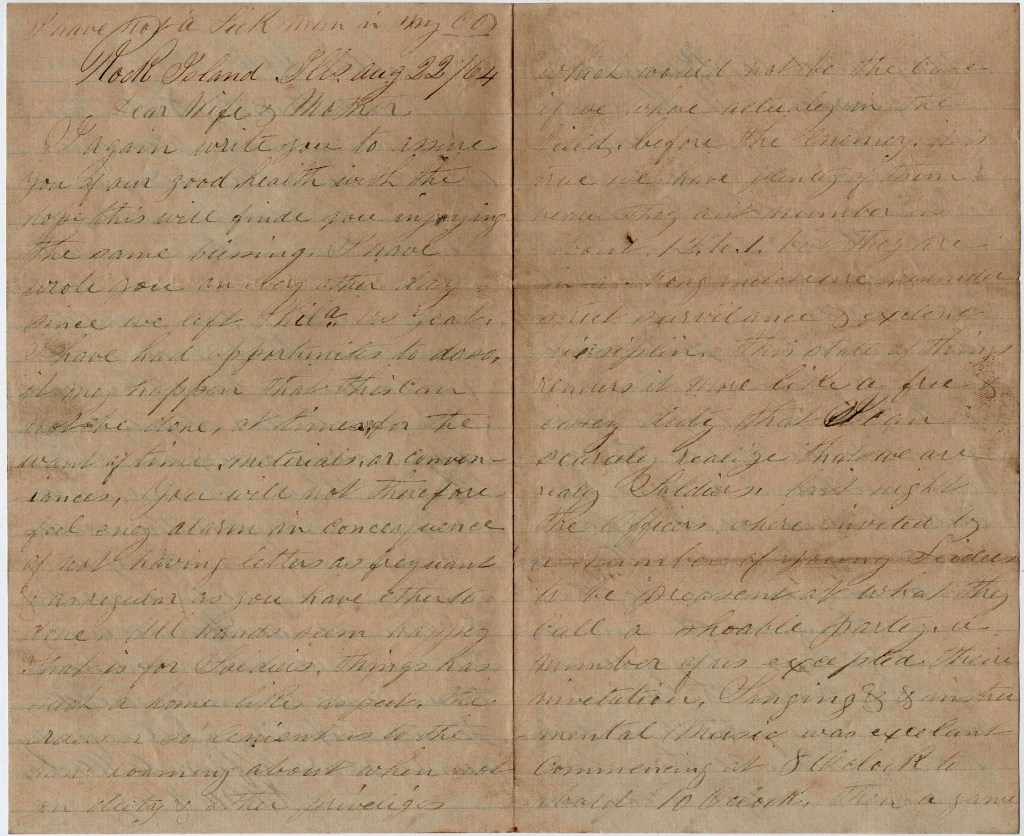 I have not a Sick man in my Co
Rock Island Ills. aug 22/64
Dear Wife & Mother
I again write you to assure
you of our good health with the
hope this will finde you injoying
the same blessing. I have
wrote you an every other day
since we left Phila. as yeat.
I have had opportunites to do so,
it may happen that this can
not be done, at times for the
want of time, materials, or conven-
iances, You will not therefore
feel eney alarm in concequence
of not having letters as frequant
& as regular as you have etherto
done. All hands seem happy
that is for Soldiers, things has
such a home like aspect. the
orders is so lenient as to the
men roaming about when not
on duty & other priveliges
which would not be the Case
if we where actualey in the
field, before the Enemey. it is
true we have plenty of them
near they ant number is
about but they are
in a strong inclosure & under
strict survilance & exelent
disciplin. this state of things
renders it more like a free &
easey duty that I can
scarcely realize that we are
realy Soldiers. Last night
the Officers where invited by
a number of young Ladies
to be preasent at what they
call a shoable partey. a
number of us excepted theire
invetation, Singing & & instru
mental Music was exelant
Commencing at 8 Oclock to
about 10 Oclock, then a game